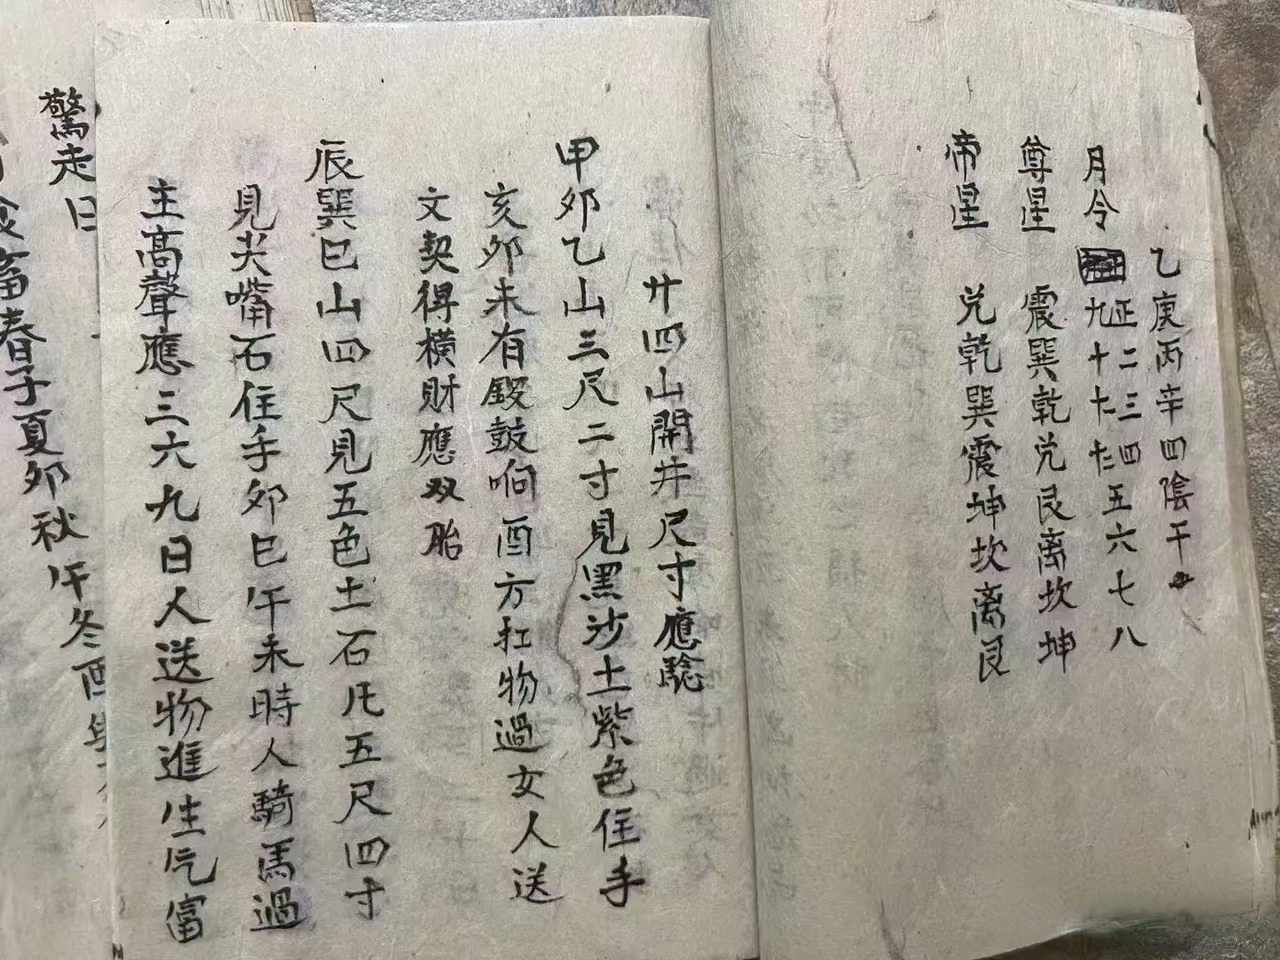 乙庚丙辛四陰干
月令 正二三四五六七八
九十十一十二
尊星 震巽乾兑艮离坎坤
帝星 兑乾巽震坤坎离艮
廿四山開井尺寸應騐
甲卯乙山三尺二寸見黑沙土紫色住手
亥卯未有殹鼓响酉方扛物過女人送
文契得横財應双胎
辰巽巳山四尺見五色土石凡五尺四寸
見尖嘴石住手卯巳午未時人騎馬過
主高聲應三六九日人送物進生气富
驚走日
畜春子夏卯秋午冬酉